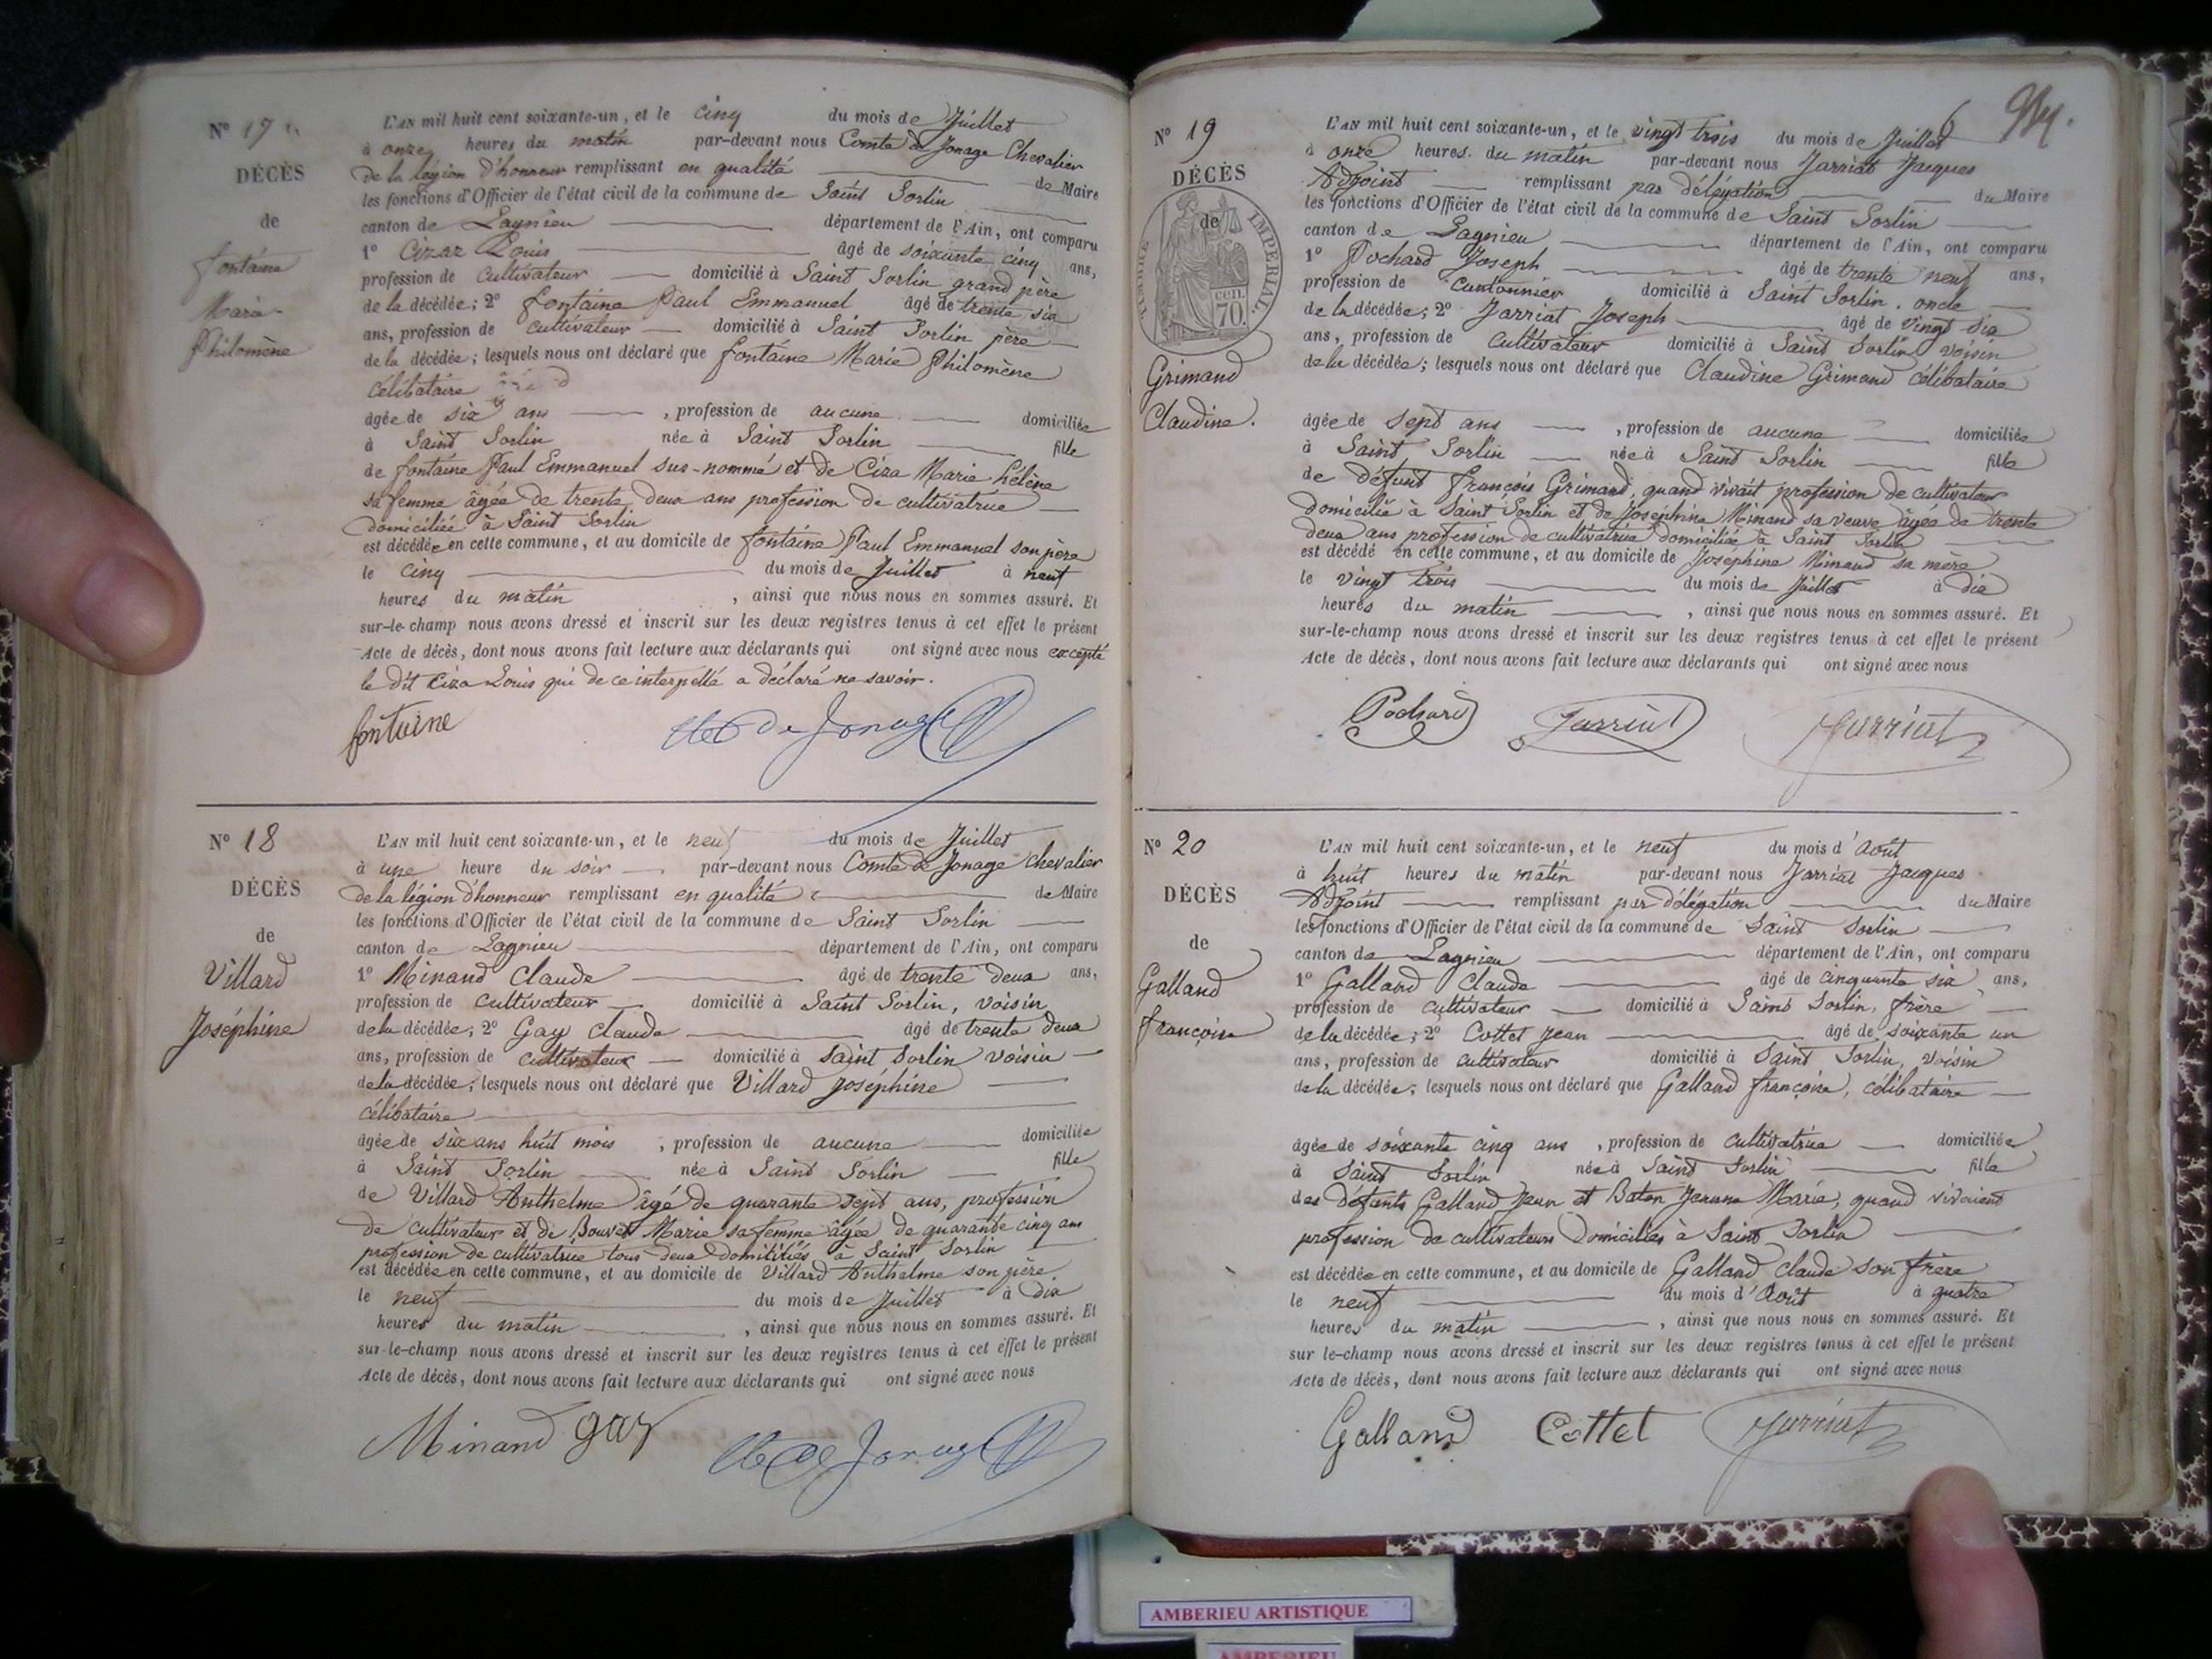 N° 17
DÉCÈS
de
fontaine
Marie
Philomène
L'AN mil huit cent soixante-un, et le cinq du mois de Juillet
à onze heures du matin par-devant nous Comte de Jonage Chevalier
de la légion d'honneur remplissant en qualité de Maire
les fonctions d'Officier de l'état civil de la commune de Saint Sorlin
canton de Lagnieu département de l'Ain, ont comparu
1° Cizaz Louis âgé de soixante cinq ans,
profession de Cultivateur domicilié à Saint Sorlin grand père
de la décédée; 2° fontaine Paul Emmanuel âgé de trente six
ans, profession de cultivateur domicilié à Saint Sorlin père
de la décédée; lesquels nous ont déclaré que fontaine Marie Philomène
célibataire
âgée de six ans, profession de aucune domiciliée
à Saint Sorlin née à Saint Sorlin fille
de fontaine Paul Emmanuel sus-nommé et de Ciza Marie hélène
sa femme âgée de trente deux ans profession de cultivatrice
domiciliée à Saint Sorlin
est décédée en cette commune, et au domicile de fontaine Paul Emmanuel son père
le cinq du mois de Juillet à neuf
heures du matin, ainsi que nous nous en sommes assuré. Et
sur-le-champ nous avons dressé et inscrit sur les deux registres tenus à cet effet le présent
Acte de décès, dont nous avons fait lecture aux déclarants qui ont signé avec nous excepté
le dit Ciza Louis qui de ce interpellé a déclaré ne savoir.
fontaine Cte de Jonage
N° 18
DÉCÈS
de
Villard
Joséphine
L'AN mil huit cent soixante-un, et le neuf du mois de Juillet
à une heure du soir par-devant nous Comte de Jonage chevalier
de la légion d'honneur remplissant en qualité de Maire
les fonctions d'Officier de l'état civil de la commune de Saint Sorlin
canton de Lagnieu département de l'Ain, ont comparu
1° Minand Claude âgé de trente deux ans,
profession de cultivateur domicilié à Saint Sorlin, voisin
de la décédée; 2° Gay Claude âgé de trente deux
ans, profession de cultivateur domicilié à Saint Sorlin voisin
de la décédée; lesquels nous ont déclaré que Villard Joséphine
célibataire
âgée de six ans huit mois, profession de aucune domiciliée
à Saint Sorlin née à Saint Sorlin fille
de Villard Anthelme âgé de quarante sept ans, profession
de cultivateur et de Bouvet Marie sa femme âgée de quarante cinq ans
profession de cultivatrice tous deux domiciliés à Saint Sorlin
est décédée en cette commune, et au domicile de Villard Anthelme son père
le neuf du mois de Juillet à dix
heures du matin, ainsi que nous nous en sommes assuré. Et
sur-le-champ nous avons dressé et inscrit sur les deux registres tenus à cet effet le présent
Acte de décès, dont nous avons fait lecture aux déclarants qui ont signé avec nous
Minand gay Cte de Jonage
6
N° 19
DÉCÈS
de
TIMBRE IMPÉRIAL.
cen.
70.
Grimand
Claudine.
L'AN mil huit cent soixante-un, et le vingt trois du mois de Juillet
à onze heures du matin par-devant nous Jarriat Jacques
Adjoint remplissant par délégation du Maire
les fonctions d'Officier de l'état civil de la commune de Saint Sorlin
canton de Lagnieu département de l'Ain, ont comparu
1° Pochard Joseph âgé de trente neuf ans,
profession de Cantonnier domicilié à Saint Sorlin. oncle
de la décédée; 2° Jarriat Joseph âgé de vingt six
ans, profession de cultivateur domicilié à Saint Sorlin voisin
de la décédée; lesquels nous ont déclaré que Claudine Grimand célibataire
âgée de sept ans, profession de aucune domiciliée
à Saint Sorlin née à Saint Sorlin fille
de défunt françois Grimand, quand vivait profession de cultivateur
domicilié à Saint Sorlin et de Joséphine Minand sa veuve âgée de trente
deux ans profession de cultivatrice domiciliée à Saint Sorlin
est décédé en cette commune, et au domicile de Joséphine Minand sa mère
le vingt trois du mois de Juillet à dix
heures du matin, ainsi que nous nous en sommes assuré. Et
sur-le-champ nous avons dressé et inscrit sur les deux registres tenus à cet effet le présent
Acte de décès, dont nous avons fait lecture aux déclarants qui ont signé avec nous
Pochard Jarriat Jarriat
N° 20
DÉCÈS
de
Galland
françoise
L'AN mil huit cent soixante-un, et le neuf du mois d'août
à huit heures du matin par-devant nous Jarriat Jacques
Adjoint remplissant par délégation du Maire
les fonctions d'Officier de l'état civil de la commune de Saint Sorlin
canton de Lagnieu département de l'Ain, ont comparu
1° Galland Claude âgé de cinquante six ans,
profession de cultivateur domicilié à Saint Sorlin, frère
de la décédée; 2° Cottet Jean âgé de soixante un
ans, profession de cultivateur domicilié à Saint Sorlin, voisin
de la décédée; lesquels nous ont déclaré que Galland françoise, célibataire
âgée de soixante cinq ans, profession de cultivatrice domiciliée
à Saint Sorlin née à Saint Sorlin fille
des défunts Galland Jean et Baton Jeanne Marie, quand vivaient
profession de cultivateurs domiciliés à Saint Sorlin
est décédée en cette commune, et au domicile de Galland Claude son frère
le neuf du mois d'Août à quatre
heures du matin, ainsi que nous nous en sommes assuré. Et
sur le-champ nous avons dressé et inscrit sur les deux registres tenus à cet effet le présent
Acte de décès, dont nous avons fait lecture aux déclarants qui ont signé avec nous
Galland Cottet Jarriat
AMBERIEU ARTISTIQUE
AMBERIEU